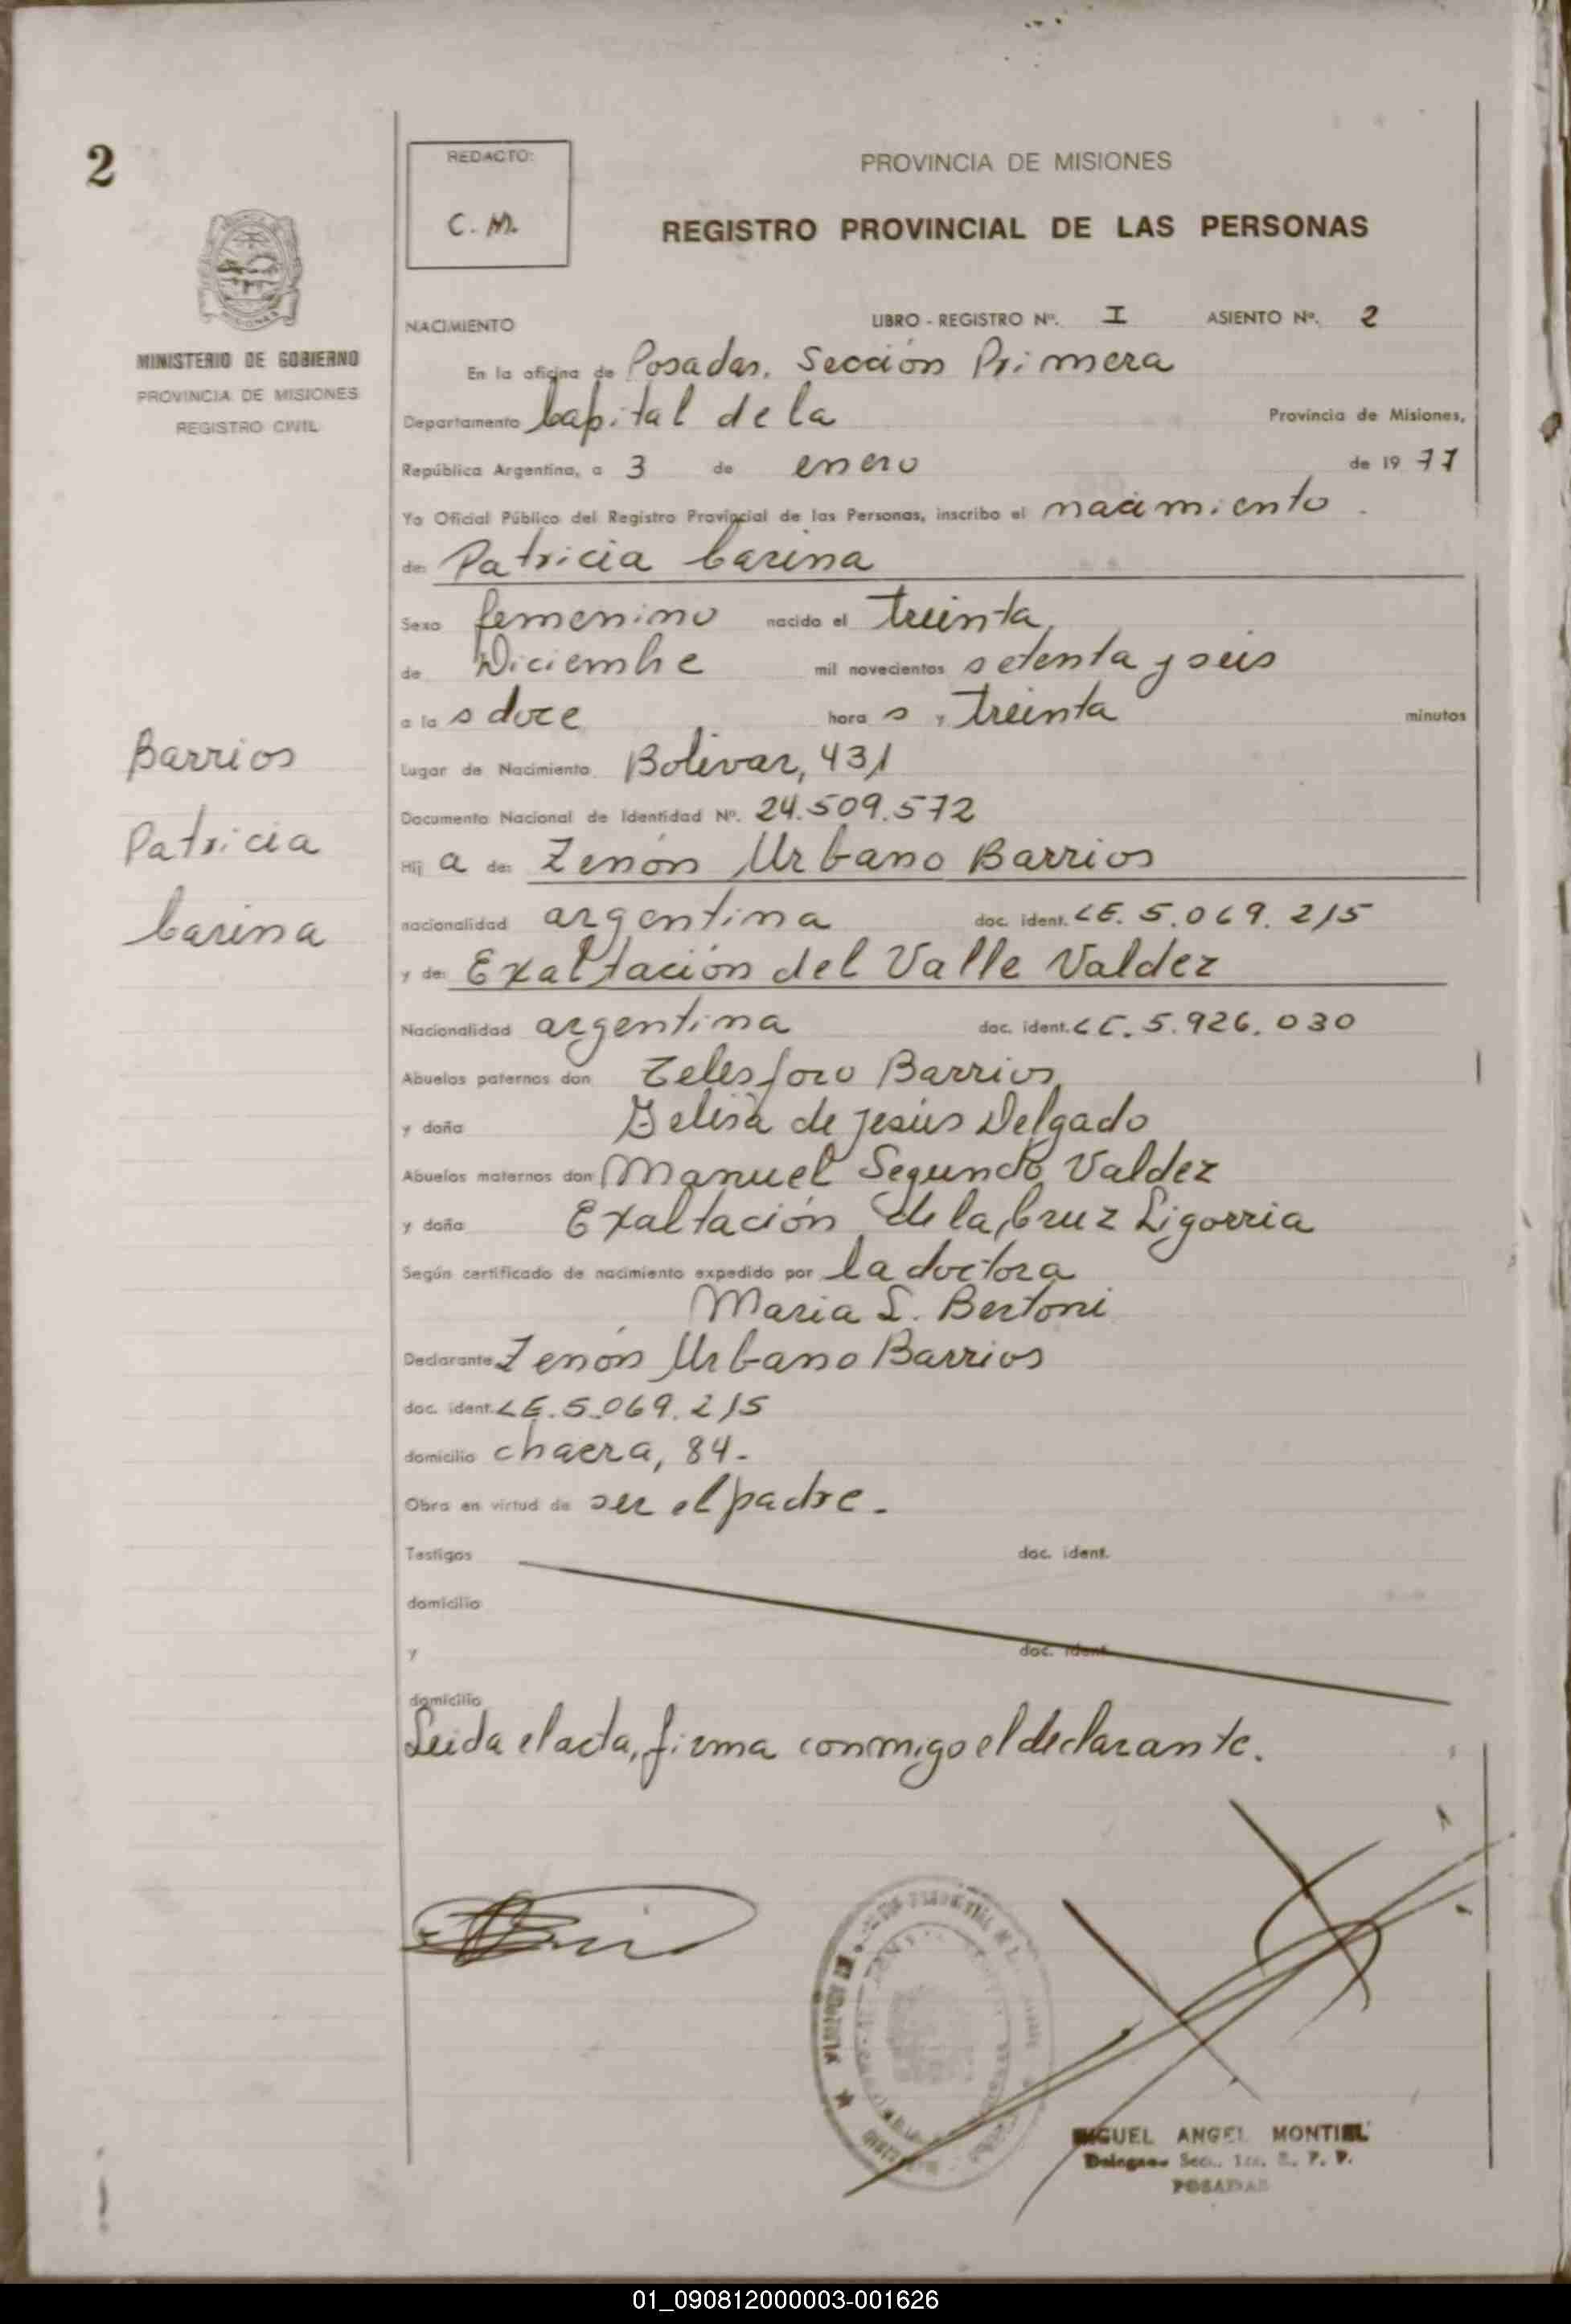 2
REDACTO:
C. M.
PROVINCIA DE MISIONES
REGISTRO PROVINCIAL DE LAS PERSONAS
MINISTERIO DE GOBIERNO
PROVINCIA DE MISIONES
REGISTRO CIVIL
NACIMIENTO LIBRO - REGISTRO Nº. I ASIENTO Nº. 2
En la oficina de Posadas. Sección Primera
Departamento Capital de la Provincia de Misiones,
República Argentina, a 3 de enero de 1977
Yo Oficial Público del Registro Provincial de las Personas, inscribo el nacimiento
de: Patricia Carina
Sexo femenino nacido el treinta
de Diciembre mil novecientos setenta y seis
a las doce horas y treinta minutos
Barrios
Patricia
Carina
Lugar de Nacimiento Bolivar, 431
Documento Nacional de Identidad Nº. 24.509.572
Hija de: Zenón Urbano Barrios
nacionalidad argentina doc. ident. LE. 5.069.215
y de: Exaltación del Valle Valdez
Nacionalidad argentina doc. ident. LC. 5.926.030
Abuelos paternos don Telesforo Barrios
y doña de Jesús Delgado
Abuelos maternos don Manuel Segundo Valdez
y doña Exaltación de la Cruz Ligorria
Según certificado de nacimiento expedido por la doctora
Maria L. Bertoni
Declarante Zenón Urbano Barrios
doc. ident. LE. 5.069.215
domicilio chacra, 84.
Obra en virtud de ser el padre.
Testigos doc. ident.
domicilio
y doc. ident.
domicilio
Leida el acta, firma conmigo el declarante.
MIGUEL ANGEL MONTIEL
POSADAS
01_090812000003-001626